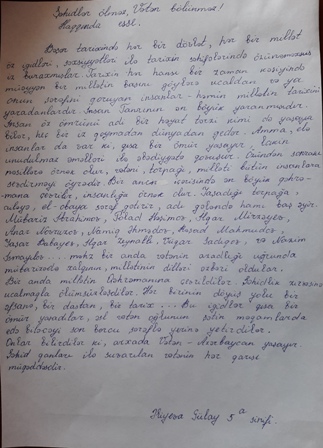 Şəhidlər ölməz, Vətən bölünməz!
Haqqında esse.
Bəşər tarixində hər bir dövlət, hər bir millət
öz igidləri, şəxsiyyətləri ilə tarixin səhifələrində
iz buraxmışlar. Tarixin hər hansı bir zaman kəsiyində
müəyyən bir millətin başını göylərə ucaldan və yer
onun şərəfini qoruyan insanlar - həmin millətin tarixini
yaradanlardır. İnsan Tanrının ən böyük yaranmışıdır.
İnsan öz ömrünü adi bir həyat tərzi kimi də yaşaya
bilər, heç bir iz qoymadan dünyadan gedər. Amma, elə
insanlar da var ki, qısa bir ömür yaşayır, lakin
unudulmaz əməlləri ilə əbədiyyətə qovuşur. Özündən sonrakı
nəsillərə örnək olur, vətəni, torpağı, milləti bütün insanlara
sevdirməyi öyrədir. Bir anın içində ən böyük qəhrə-
mana çevrilir, insanlığa örnək olur. Yaşadığı torpağa,
ailəyə, el-obaya şərəf gətirir, adı gələndə hamı baş əyir.
Mübariz İbrahimov, Polad Həşimov, İlqar Mirzəyev,
Anar Novruzov, Namiq Əhmədov, Rəşad Mahmudov,
Yaşar Babayev, İlqar Zeynallı, Vüqar Sadıqov, və Nazim
İsmayılov.... məhz bir anda vətənin azadlığı uğrunda
mübarizədə xalqının, millətinin dillər əzbəri oldular.
Bir anda millətin qəhrəmanına çevrildilər. Şəhidlik zirvəsinə
ucalmaqla ölümsüzləşdilər. Hər birinin döyüş yolu bir
əfsanə, bir dastan, bir tarix... Bu igidlər qısa bir
ömür yaşadılar, əsl vətən oğlunun çətin məqamlarda
edə biləcəyi son borcu şərəflə yerinə yetirdilər.
Onlar bilirdilər ki, arxada Vətən - Azərbaycan yaşayır.
Şəhid qanları ilə suvarılan vətənin hər qarışı
müqəddəsdir.
Gülay 5ᵃ sinfi.